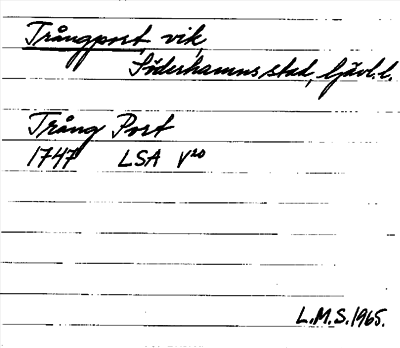 Trångport, vik,
Söderhamns stad, Gävl.l.
Trång Port
1747 LSA V20
L.M.S.1965.